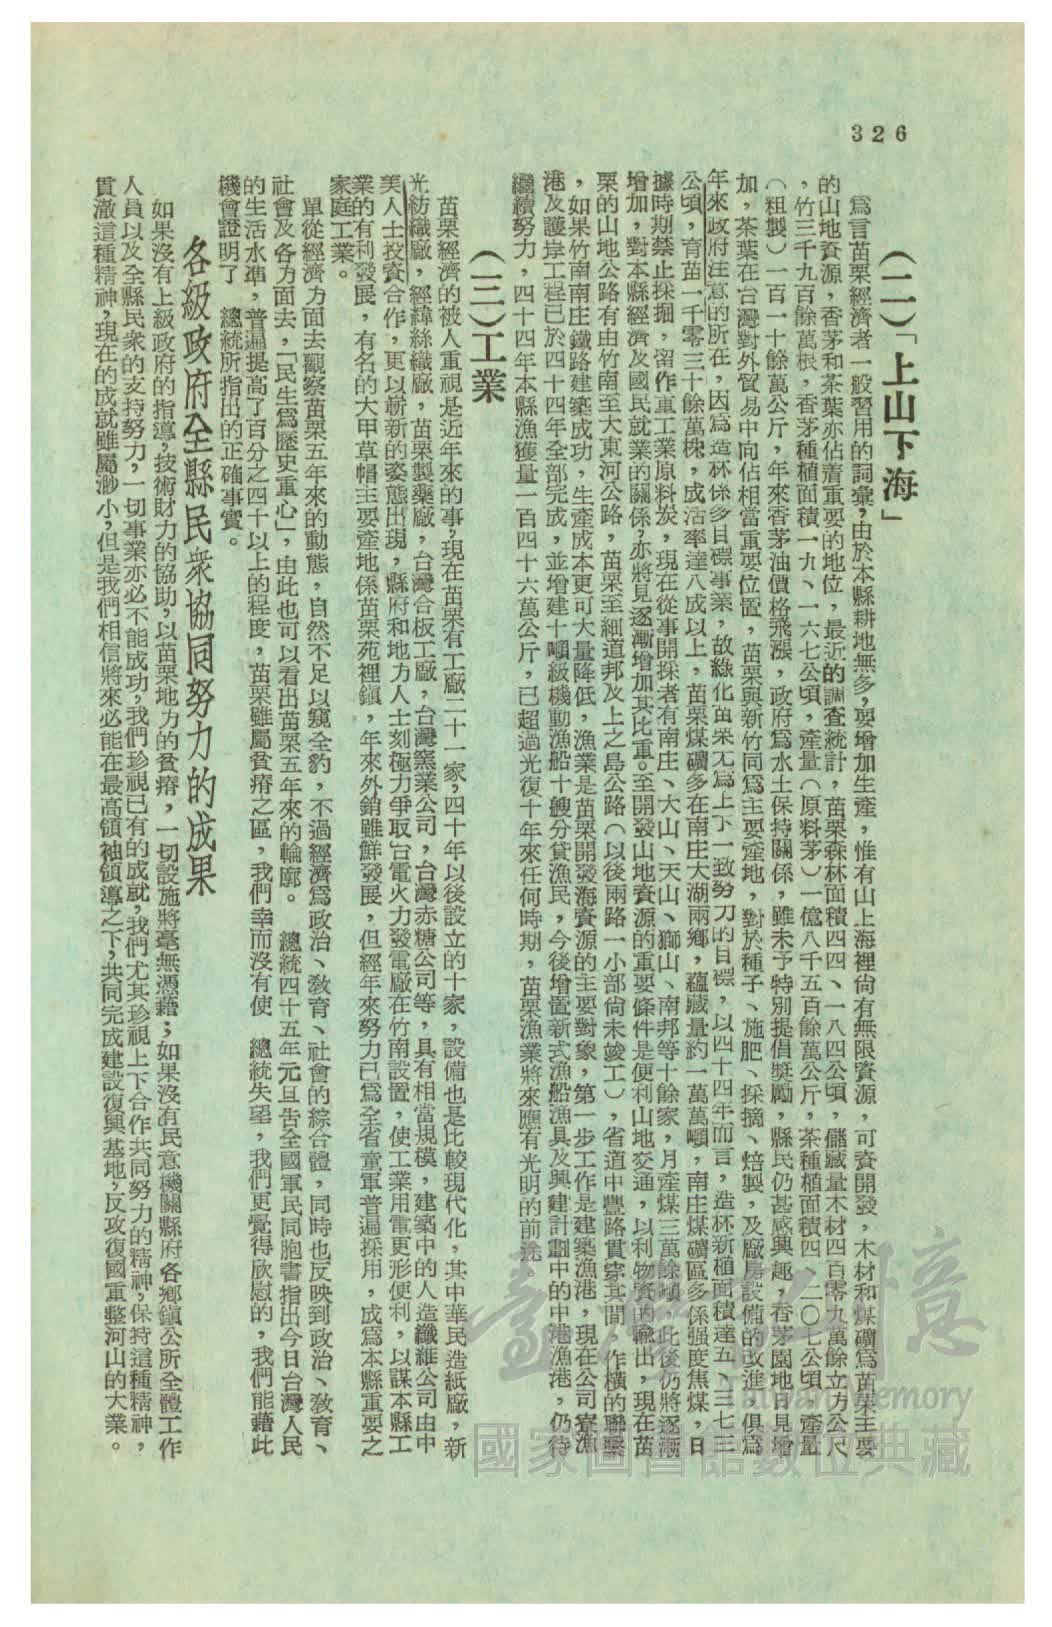 326
(二)「上山下海」
爲言苗栗經濟者一般習用的詞彙，由於本縣耕地無多，要增加生產，惟有山上海裡尙有無限資源，可資開發，木材和煤礦爲苗栗主要
的山地資源，香茅和茶葉亦佔着重要的地位，最近的調查統計，苗栗森林面積四四、一八四公頃，儲藏量木材四百零九萬餘立方公尺
，竹三千九百餘萬根，香茅種植面積一九、一六七公頃，產量（原料茅）一億八千五百餘萬公斤，茶種植面積四、二〇七公頃，產量
（粗製）一百一十餘萬公斤，年來香茅油價格飛漲，政府爲水土保持關係，雖未予特別提倡獎勵，縣民仍甚感興趣，香茅園地日見增
加，茶葉在台灣對外貿易中向佔相當重要位置，苗栗與新竹同爲主要產地，對於種子、施肥、採摘、焙製，及廠房設備的改進，俱爲
年來政府注意的所在，因爲造林係多目標事業，故綠化苗栗尤爲上下一致努力的目標，以四十四年而言，造林新植面積達五、三七三
公頃，育苗一千零三十餘萬株，成活率達八成以上，苗栗煤礦多在南庄大湖兩鄉，蘊藏量約一萬萬噸，南庄煤礦區多係强度焦煤，日
據時期禁止採掘，留作軍工業原料炭，現在從事開採者有南庄、大山、天山、獅山、南邦等十餘家，月產煤三萬餘噸，此後仍將逐漸
增加，對本縣經濟及國民就業的關係，亦將見逐漸增加其比重。至開發山地資源的重要條件是便利山地交通，以利物資的輸出，現在苗
栗的山地公路有由竹南至大東河公路，苗栗至細道邦及上之島公路（以後兩路一小部尙未竣工），省道中豐路貫穿其間，作橫的聯繫
，如果竹南南庄鐵路建築成功，生產成本更可大量降低，漁業是苗栗開發海資源的主要對象，第一步工作是建築漁港，現在公司寮漁
港及護岸工程已於四十四年全部完成，並增建十噸級機動漁船十艘分貸漁民，今後增置新式漁船漁具及興建計劃中的中港漁港，仍待
繼續努力，四十四年本縣漁獲量一百四十六萬公斤，已超過光復十年來任何時期，苗栗漁業將來應有光明的前途
(三)工業
苗栗經濟的被人重視是近年來的事，現在苗栗有工廠二十一家，四十年以後設立的十家，設備也是比較現代化，其中華民造紙廠，新
光紡織廠，經緯絲織廠，苗栗製藥廠，台灣合板工廠，台灣窯業公司，台灣赤糖公司等，具有相當規模，建築中的人造纖維公司由中
美人士投資合作，更以嶄新的姿態出現，縣府和地方人士刻極力爭取台電火力發電廠在竹南設置，使工業用電更形便利，以謀本縣工
業的有利發展，有名的大甲草帽主要產地係苗栗苑裡鎭，年來外銷雖鮮發展，但經年來努力已爲全省童軍普遍採用，成爲本縣重要之
家庭工業。
單從經濟方面去觀察苗栗五年來的動態，自然不足以窺全豹，不過經濟爲政治、敎育、社會的綜合體，同時也反映到政治、敎育、
社會及各方面去，「民生爲歷史重心」，由此也可以看出苗栗五年來的輪廓。 總統四十五年元旦告全國軍民同胞書指出今日台灣人民
的生活水準，普遍提高了百分之四十以上的程度，苗栗雖屬貧瘠之區，我們幸而沒有使 總統失望，我們更覺得欣慰的，我們能藉此
機會證明了 總統所指出的正確事實。
各級政府全縣民衆協同努力的成果
如果沒有上級政府的指導，技術財力的協助，以苗栗地方的貧瘠，一切設施將毫無憑藉；如果沒有民意機關縣府各鄉鎭公所全體工作
人員以及全縣民衆的支持努力，一切事業亦必不能成功，我們珍視已有的成就，我們尤其珍視上下合作共同努力的精神，保持這種精神，
貫澈這種精神，現在的成就雖屬渺小，但是我們相信將來必能在最高領袖領導之下，共同完成建設復興基地，反攻復國重整河山的大業。
臺灣記憶
Taiwan Memory
國家圖書館數位典藏